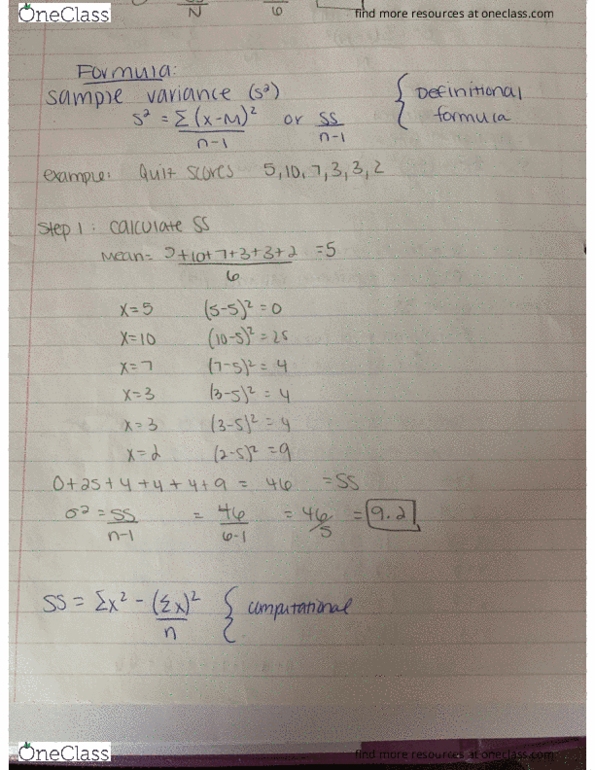 OneClass
find more resources at oneclass.com
N
6
Formula:
Sample variance (s²)
s² = Σ(x-M)² / n-1 or SS / n-1 { Definitional formula
example: Quiz scores 5, 10, 7, 3, 3, 2
Step 1: Calculate SS
Mean = 5+10+7+3+3+2 / 6 = 5
x=5 (5-5)² = 0
x=10 (10-5)² = 25
x=7 (7-5)² = 4
x=3 (3-5)² = 4
x=3 (3-5)² = 4
x=2 (2-5)² = 9
0+25+4+4+4+9 = 46 = SS
σ² = SS / n-1 = 46 / 6-1 = 46/5 = 9.2
SS = Σx² - (Σx)² / n { computational
OneClass
find more resources at oneclass.com